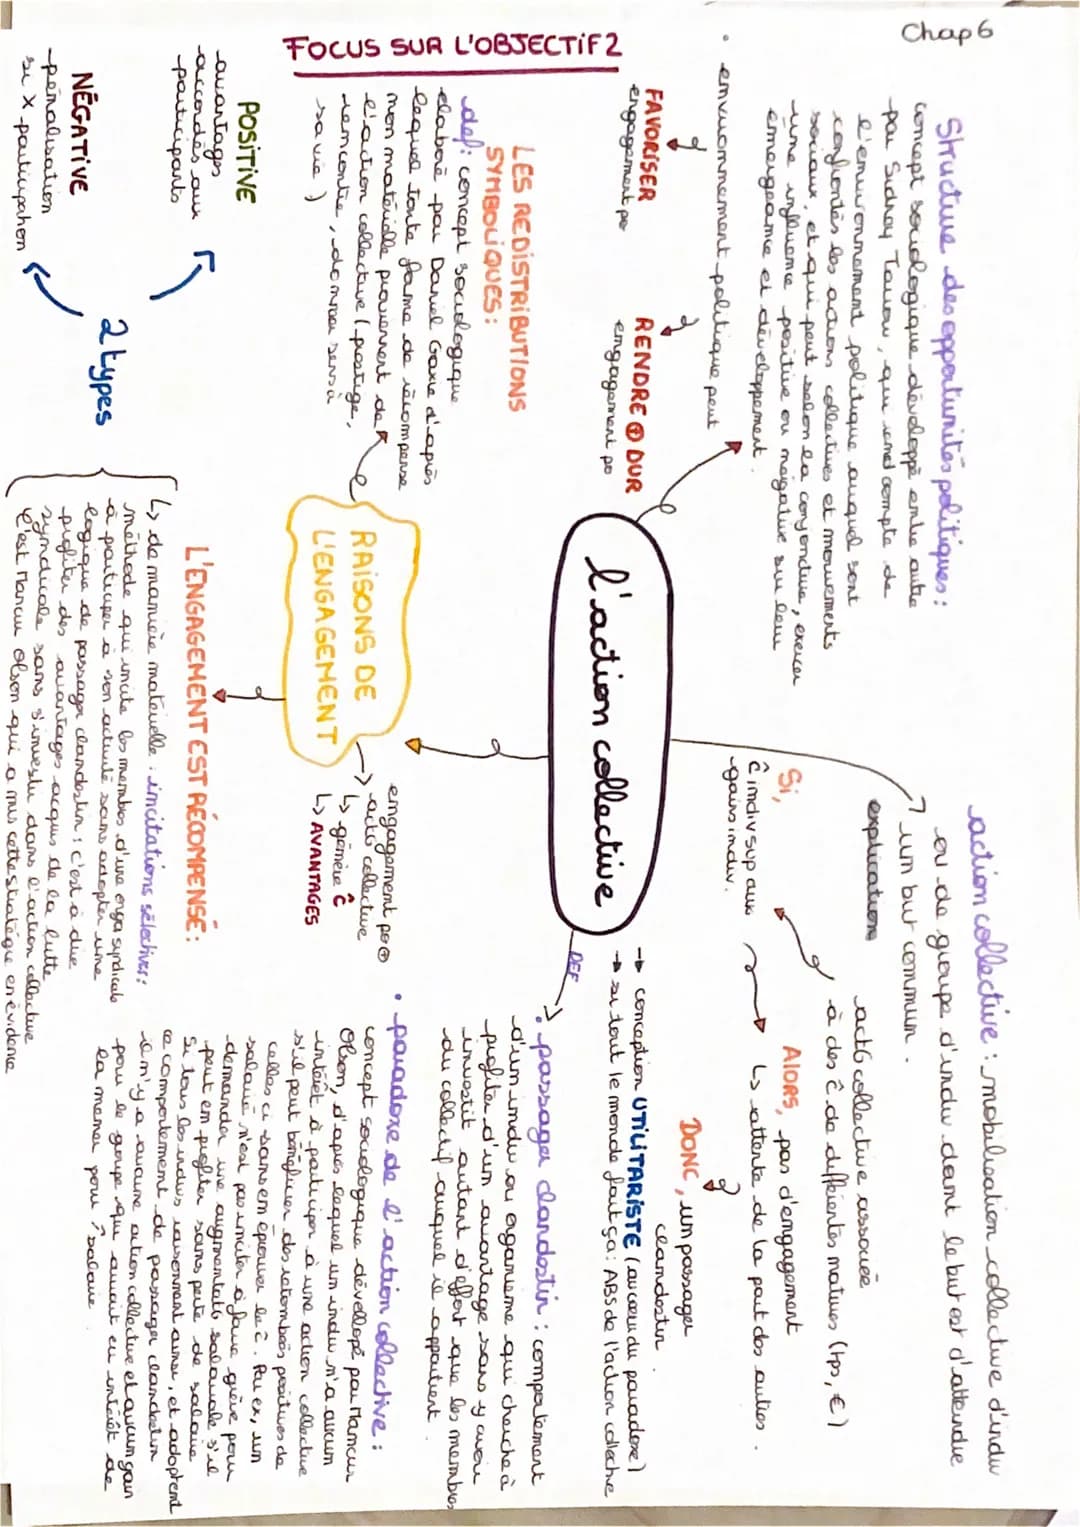 Chap 6
FOCUS SUR L'OBJECTIF 2
Structure des opportunités politiques :
concept sociologique développé entre autre
par Sidney Tarrow, qui rend compte de
l'environnement politique auquel sont
confrontés les actions collectives et mouvements
sociaux, et qui peut selon la conjoncture, exercer
une influence positive ou négative sur leur
émergeance et développement.
• environnement politique peut
FAVORISER
engagement po
RENDRE ⊕ DUR
engagement po
l'action collective
action collective : mobilisation collective d'indiv
ou de groupe d'indiv dont le but est d'atteindre
un but commun.
explications
act6 collective associée
à des ĉ de différentes natures (tps, €)
Si,
ĉ indiv sup aux
gains indiv.
Alors, pas d'engagement
↳ attente de la part des autres.
DONC, un passager
clandestin.
→ conception UTILITARISTE (au cœur du paradoxe)
→ si tout le monde fait ça : ABS de l'action collective
DEF
• passager clandestin : comportement
d'un indiv ou organisme qui cherche à
profiter d'un avantage sans y avoir
investit autant d'effort que les membres
du collectif auquel il appartient.
• paradoxe de l'action collective :
concept sociologique développé par Mancur
Olson, d'après lequel un indiv n'a aucun
intérêt à participer à une action collective
s'il peut bénéficier des retombées positives de
celles ci sans en éprouver le ĉ. Par ex, un
salarié n'est pas inciter à faire grève pour
demander une augmentat6 salariale s'il
peut en profiter sans perte de salaire
Si tous les indivs raisonnent ainsi, et adoptent
ce comportement de passager clandestin
il n'y a aucune action collective et aucun gain
pour le groupe qui aurait eu intérêt de
la mener pour ↑ salaire.
RAISONS DE
L'ENGAGEMENT
engagement po ⊕
→ acts collective
↳ génère ĉ
↳ AVANTAGES
LES REDISTRIBUTIONS
SYMBOLIQUES :
def : concept sociologique
elaboré par Daniel Gaxie d'après
lequel toute forme de récompense
non matérielle provenant de
l'action collective (prestige,
rencontre, donner sens à
sa vie)
L'ENGAGEMENT EST RÉCOMPENSÉ :
↳ de manière matérielle : incitations sélectives :
méthode qui incite les membres d'une orga syndicale
à participer à son activité sans adopter une
logique de passager clandestin : c'est à dire
profiter des avantages acquis de la lutte
syndicale sans s'investir dans l'action collective
C'est Mancur Olson qui a mis cette stratégie en évidence
2 types
POSITIVE
-avantages
accordés aux
participants
NÉGATIVE
-pénalisation
si X participation